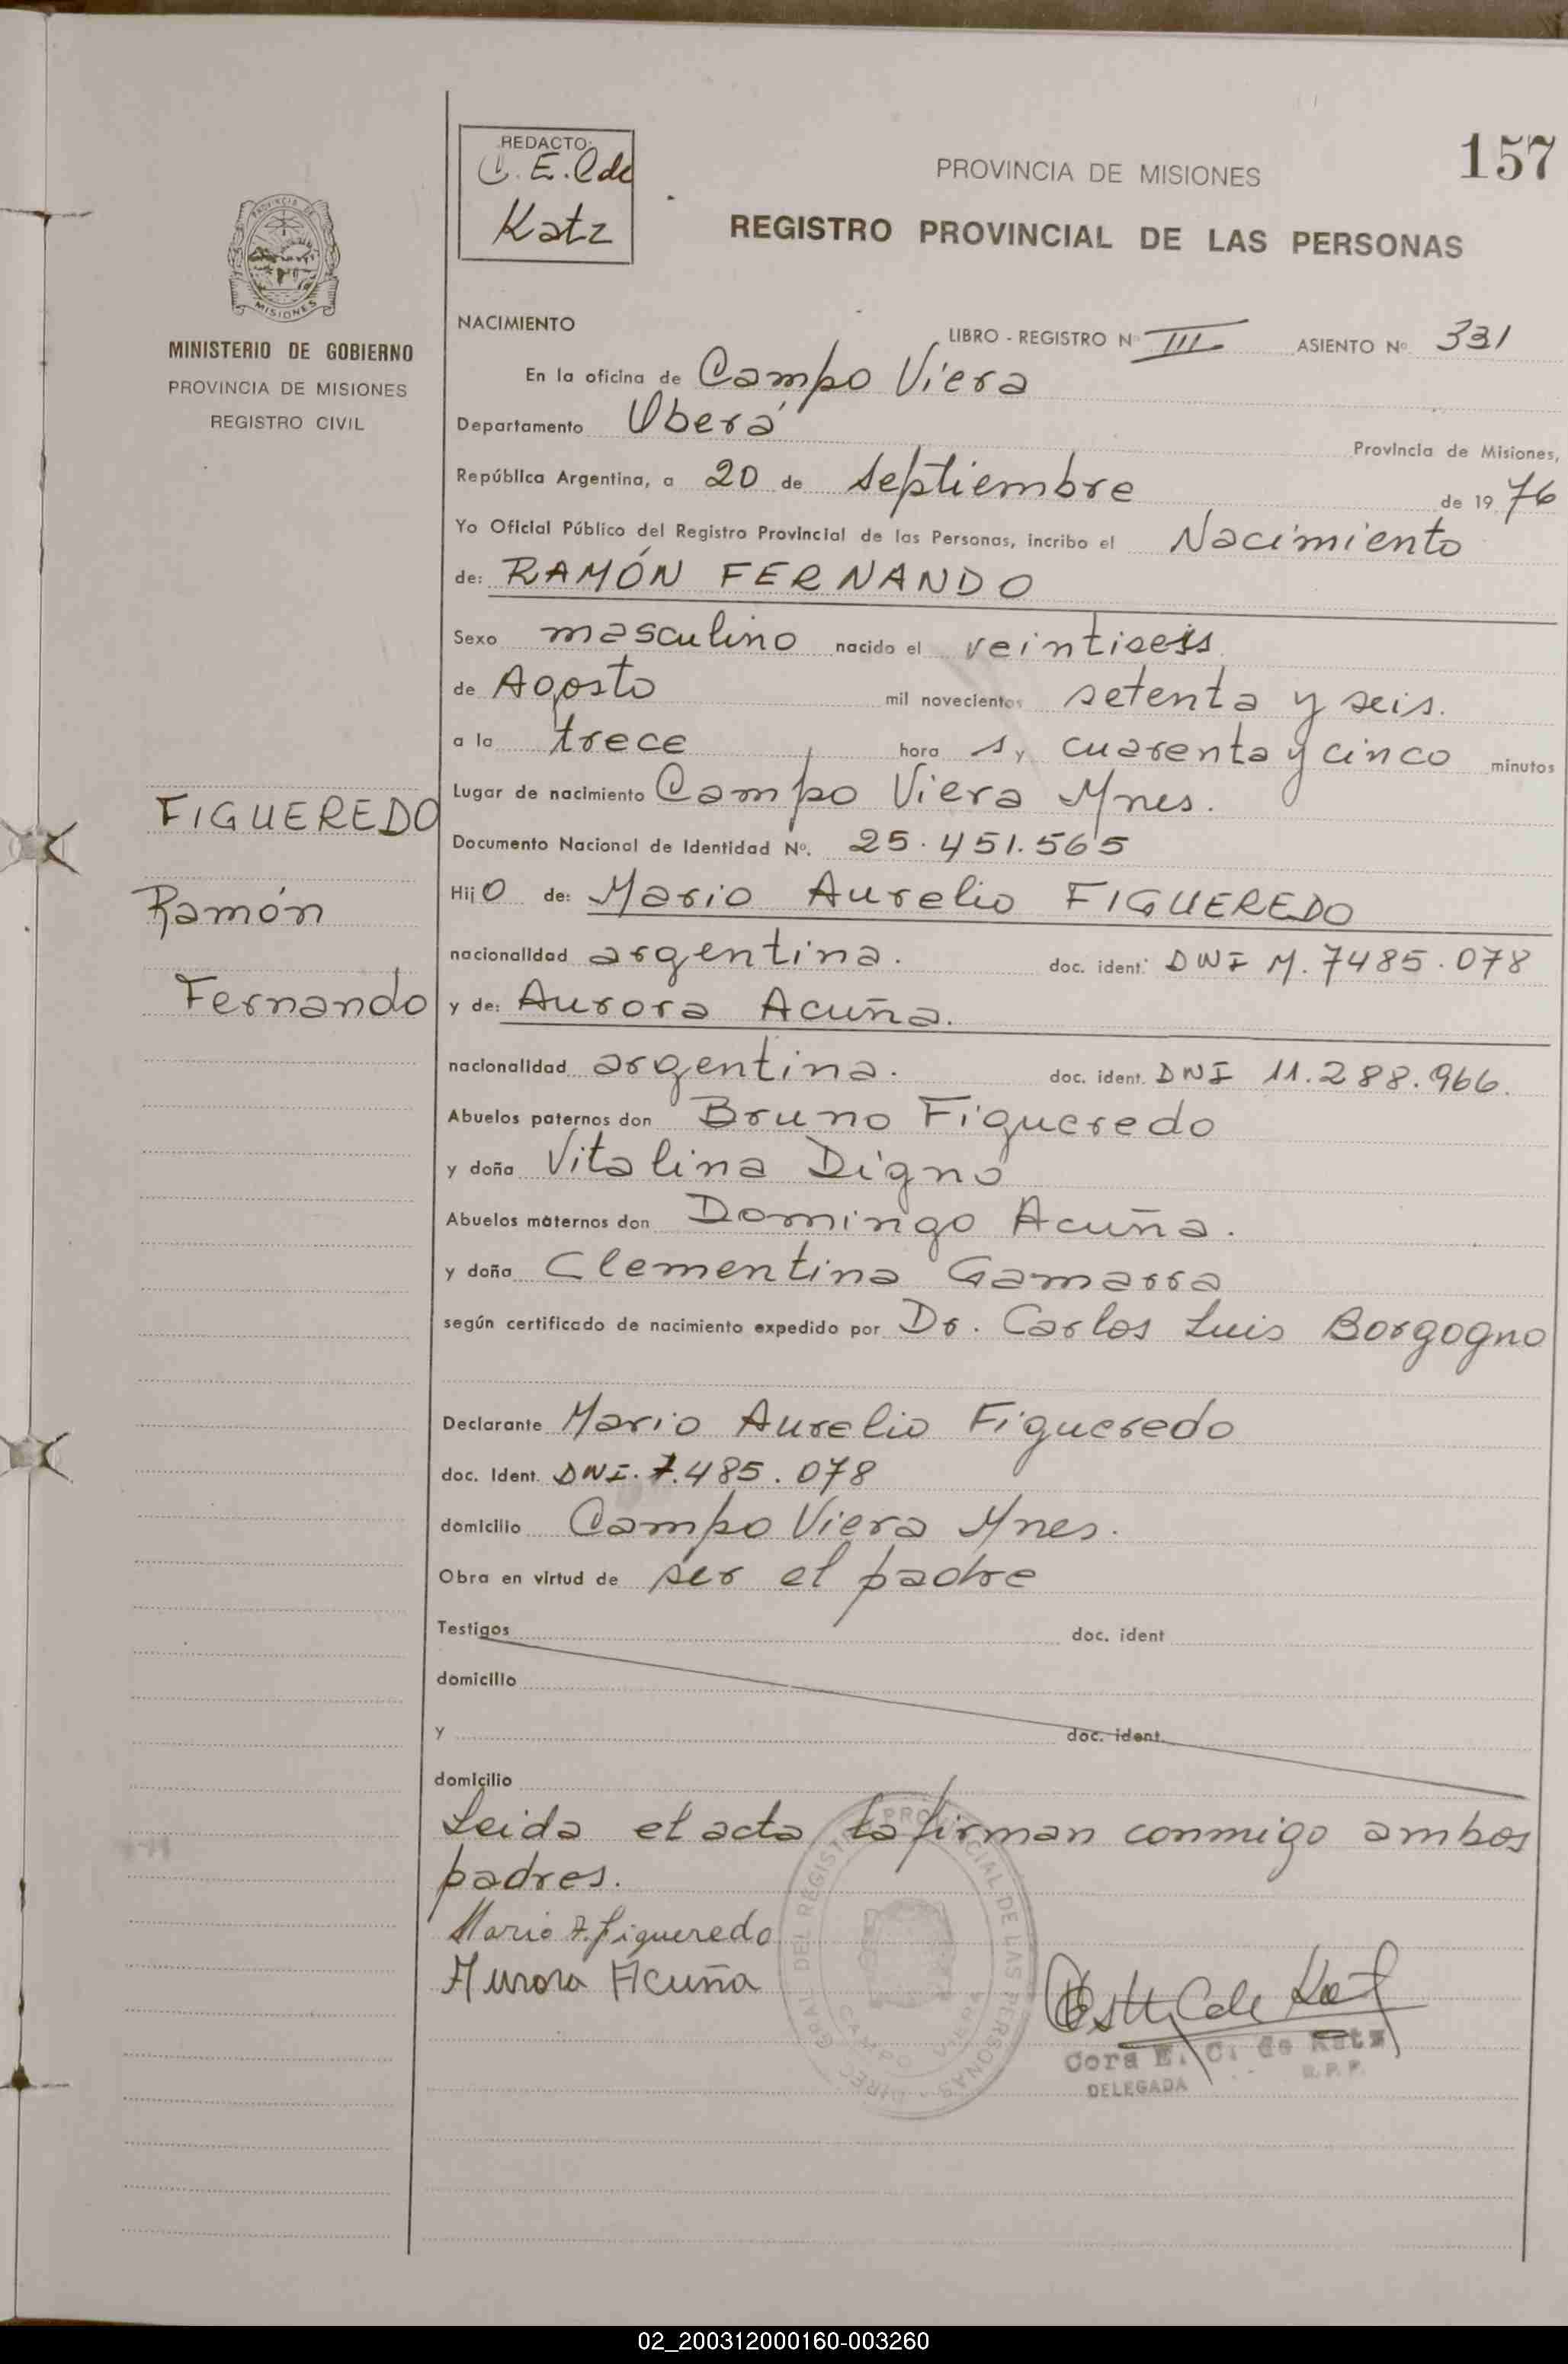 REDACTO:
C. E. C de
Katz
PROVINCIA DE MISIONES
157
REGISTRO PROVINCIAL DE LAS PERSONAS
PROVINCIA DE
MISIONES
MINISTERIO DE GOBIERNO
PROVINCIA DE MISIONES
REGISTRO CIVIL
NACIMIENTO
LIBRO - REGISTRO Nº III ASIENTO Nº 331
En la oficina de Campo Viera
Departamento Oberá Provincia de Misiones,
República Argentina, a 20 de Septiembre de 1976
Yo Oficial Público del Registro Provincial de las Personas, incribo el Nacimiento
de: RAMÓN FERNANDO
Sexo masculino nacido el veintiseis
de Agosto mil novecientos setenta y seis.
a la trece hora s y cuarenta y cinco minutos
Lugar de nacimiento Campo Viera Mnes.
FIGUEREDO
Ramón
Fernando
Documento Nacional de Identidad Nº. 25.451.565
Hijo de: Mario Aurelio FIGUEREDO
nacionalidad argentina. doc. ident. DNI M. 7485.078
y de: Aurora Acuña.
nacionalidad argentina. doc. ident. DNI 11.288.966.
Abuelos paternos don Bruno Figueredo
y doña Vitalina Digno
Abuelos maternos don Domingo Acuña.
y doña Clementina Gamarra
según certificado de nacimiento expedido por Dr. Carlos Luis Borgogno
Declarante Mario Aurelio Figueredo
doc. Ident. DNI. 7.485.078
domicilio Campo Viera Mnes.
Obra en virtud de ser el padre
Testigos doc. ident
domicilio
y doc. ident.
domicilio
Leida el acta la firman conmigo ambos
padres.
Mario A. Figueredo
Aurora Acuña
DIREC. GRAL. DEL REGISTRO PROVINCIAL DE LAS PERSONAS
CAMPO VIERA
Cora E. C. de Katz
DELEGADA R. P. P.
02_200312000160-003260